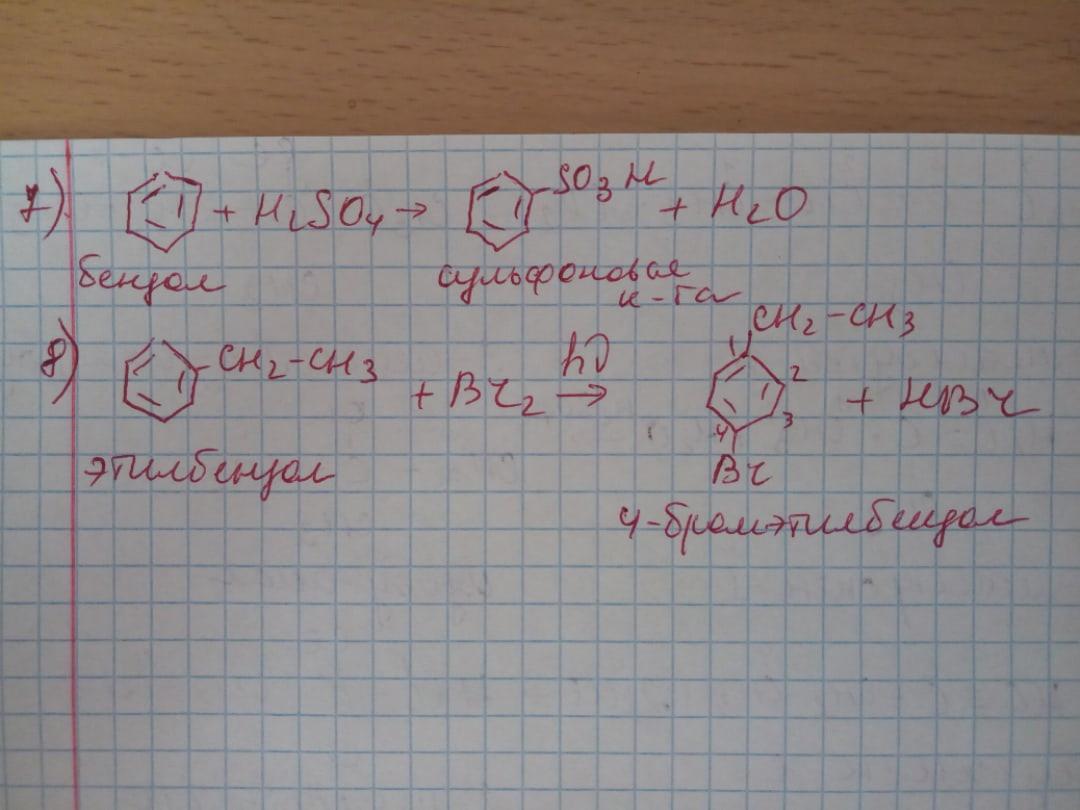 7) + H₂SO₄ → SO₃H + H₂O
бензол сульфоновая
к-та
8) CH₂-CH₃ + Br₂ hν → 1 CH₂-CH₃ 2 3 4 Br + HBr
этилбензол
4-бромэтилбензол